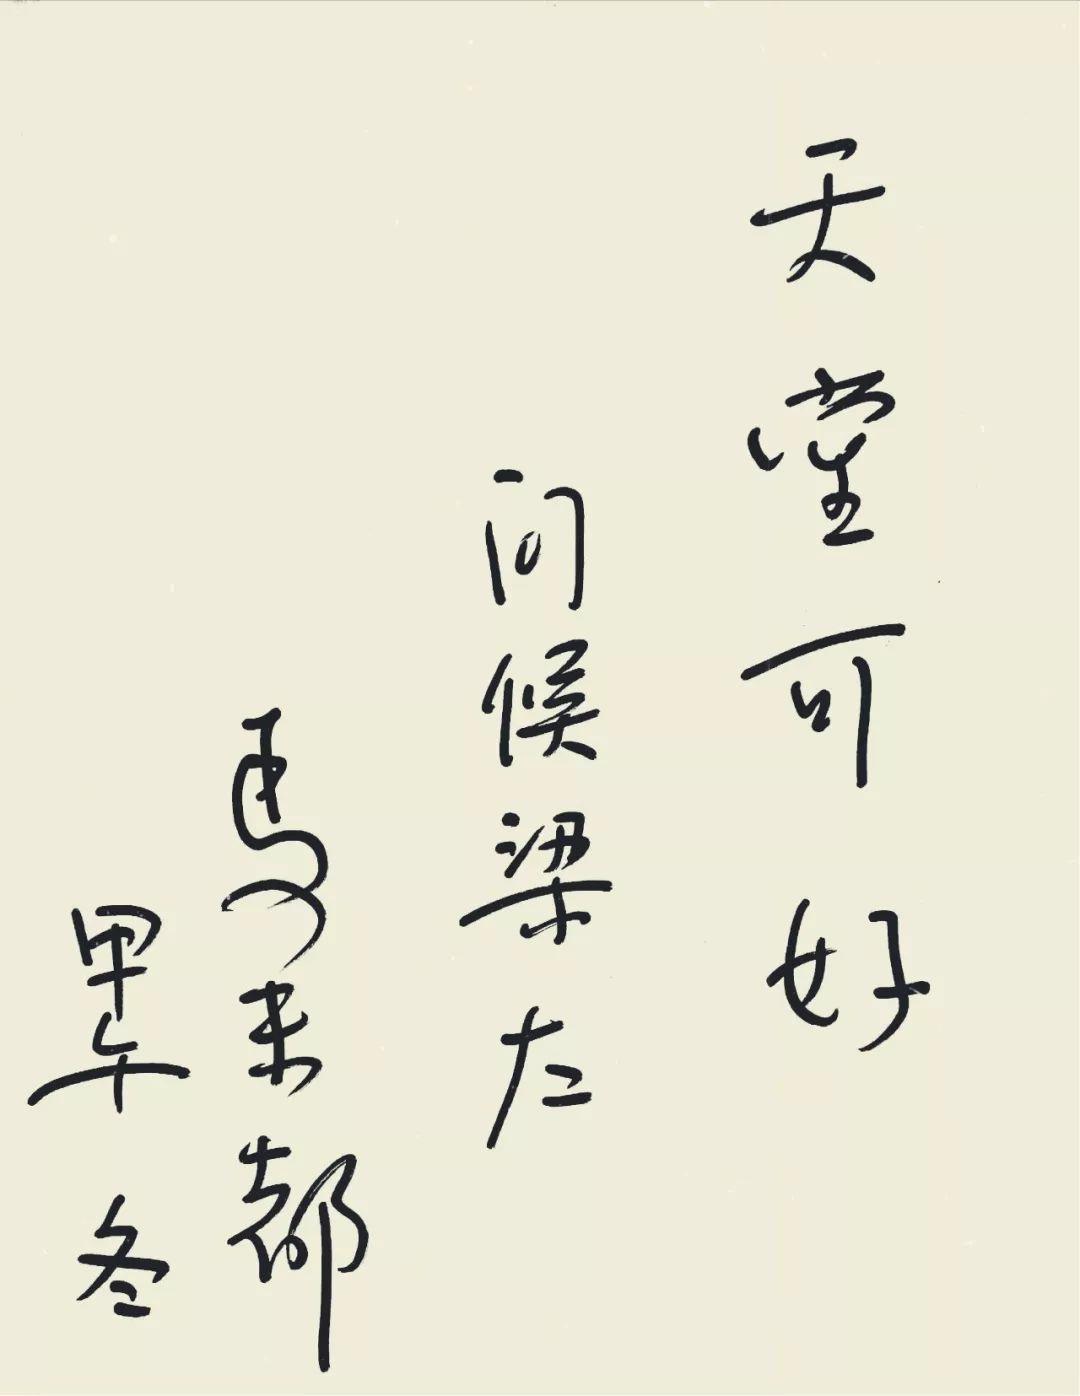 天堂可好
问候梁左
马未都
甲午冬